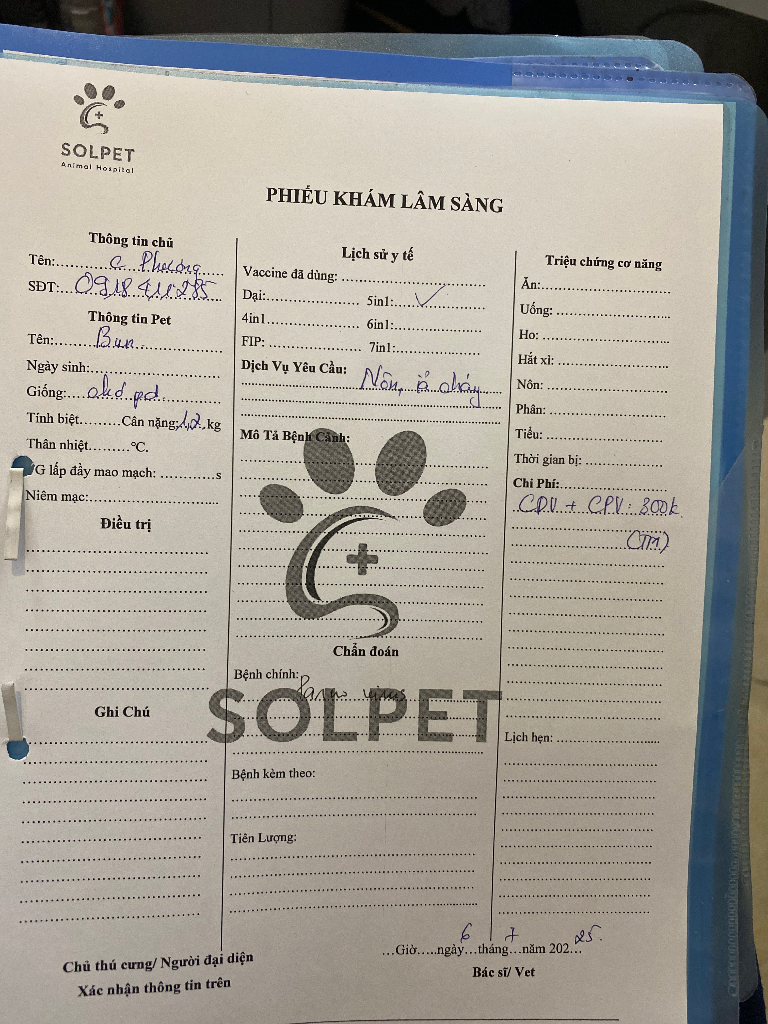 SOLPET
Animal Hospital
PHIẾU KHÁM LÂM SÀNG
Thông tin chủ
Tên: c Phương
SĐT: 0918 411 285
Thông tin Pet
Tên: Bun
Ngày sinh:
Giống:
Tính biệt.........Cân nặng: 1,2 kg
Thân nhiệt.........°C.
G lấp đầy mao mạch: ............s
Niêm mạc:
Điều trị
Ghi Chú
Lịch sử y tế
Vaccine đã dùng:
Dại: 5in1: ✓
4in1 6in1:
FIP: 7in1:
Dịch Vụ Yêu Cầu: Nôn, ỉa chảy
Mô Tả Bệnh Cảnh:
Chẩn đoán
Bệnh chính: Parvo virus
SOLPET
Bệnh kèm theo:
Tiên Lượng:
Triệu chứng cơ năng
Ăn:
Uống:
Ho:
Hắt xì:
Nôn:
Phân:
Tiểu:
Thời gian bị:
Chi Phí:
CDV + CPV: 300k
(TM)
Lịch hẹn:
...Giờ.....ngày 6 tháng 7 năm 202 25.
Bác sĩ/ Vet
Chủ thú cưng/ Người đại diện
Xác nhận thông tin trên